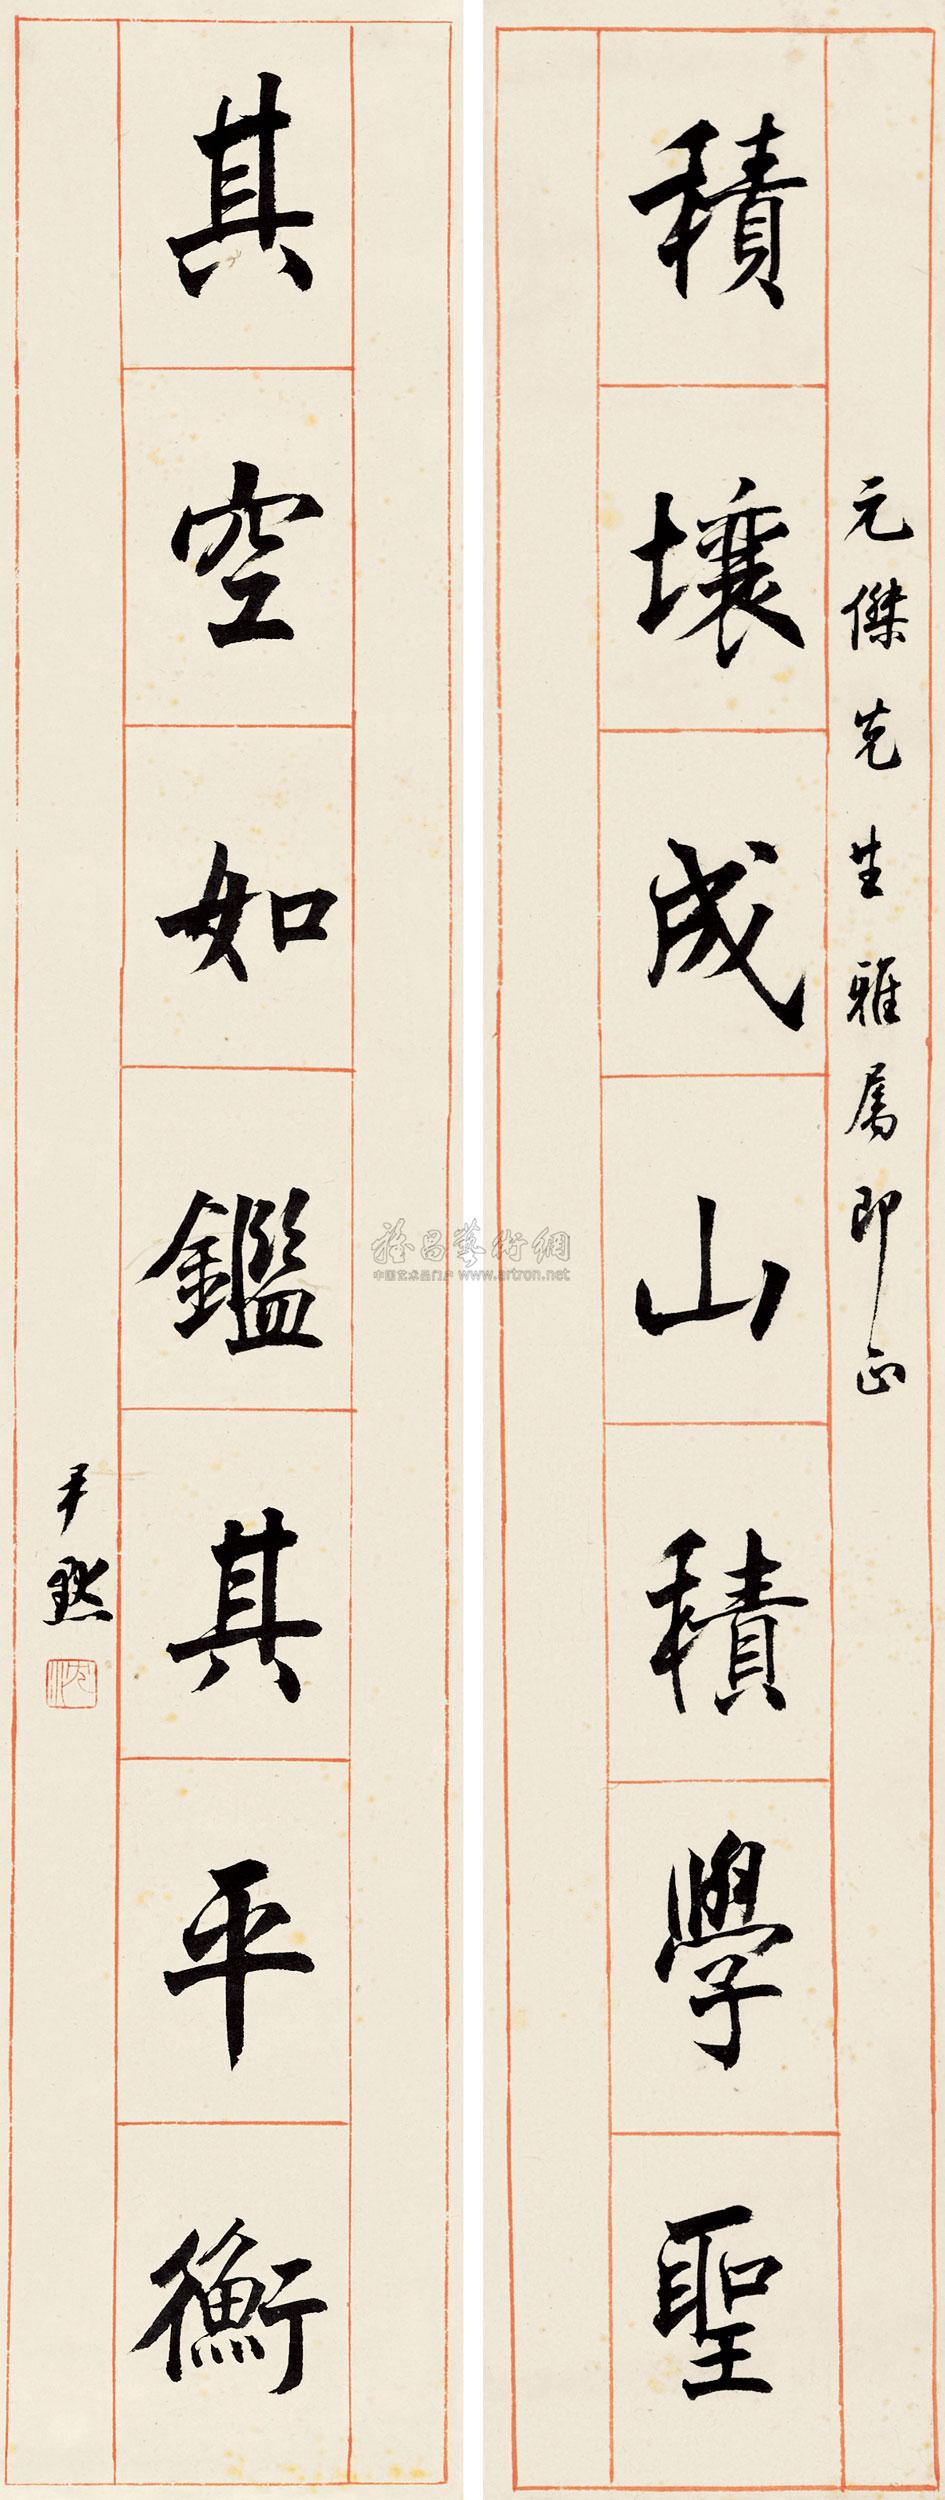 元傑先生雅属即正
積壤成山積學聖
其空如鑑其平衡
尹默
沈
雅昌藝術網
中国艺术品门户 www.artron.net